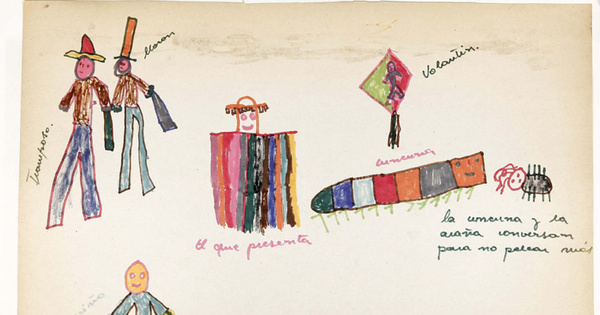 Tramposo.
lloron
Volantin.
cuncuna
El que presenta
la cuncuna y la
araña conversan
para no pelear más